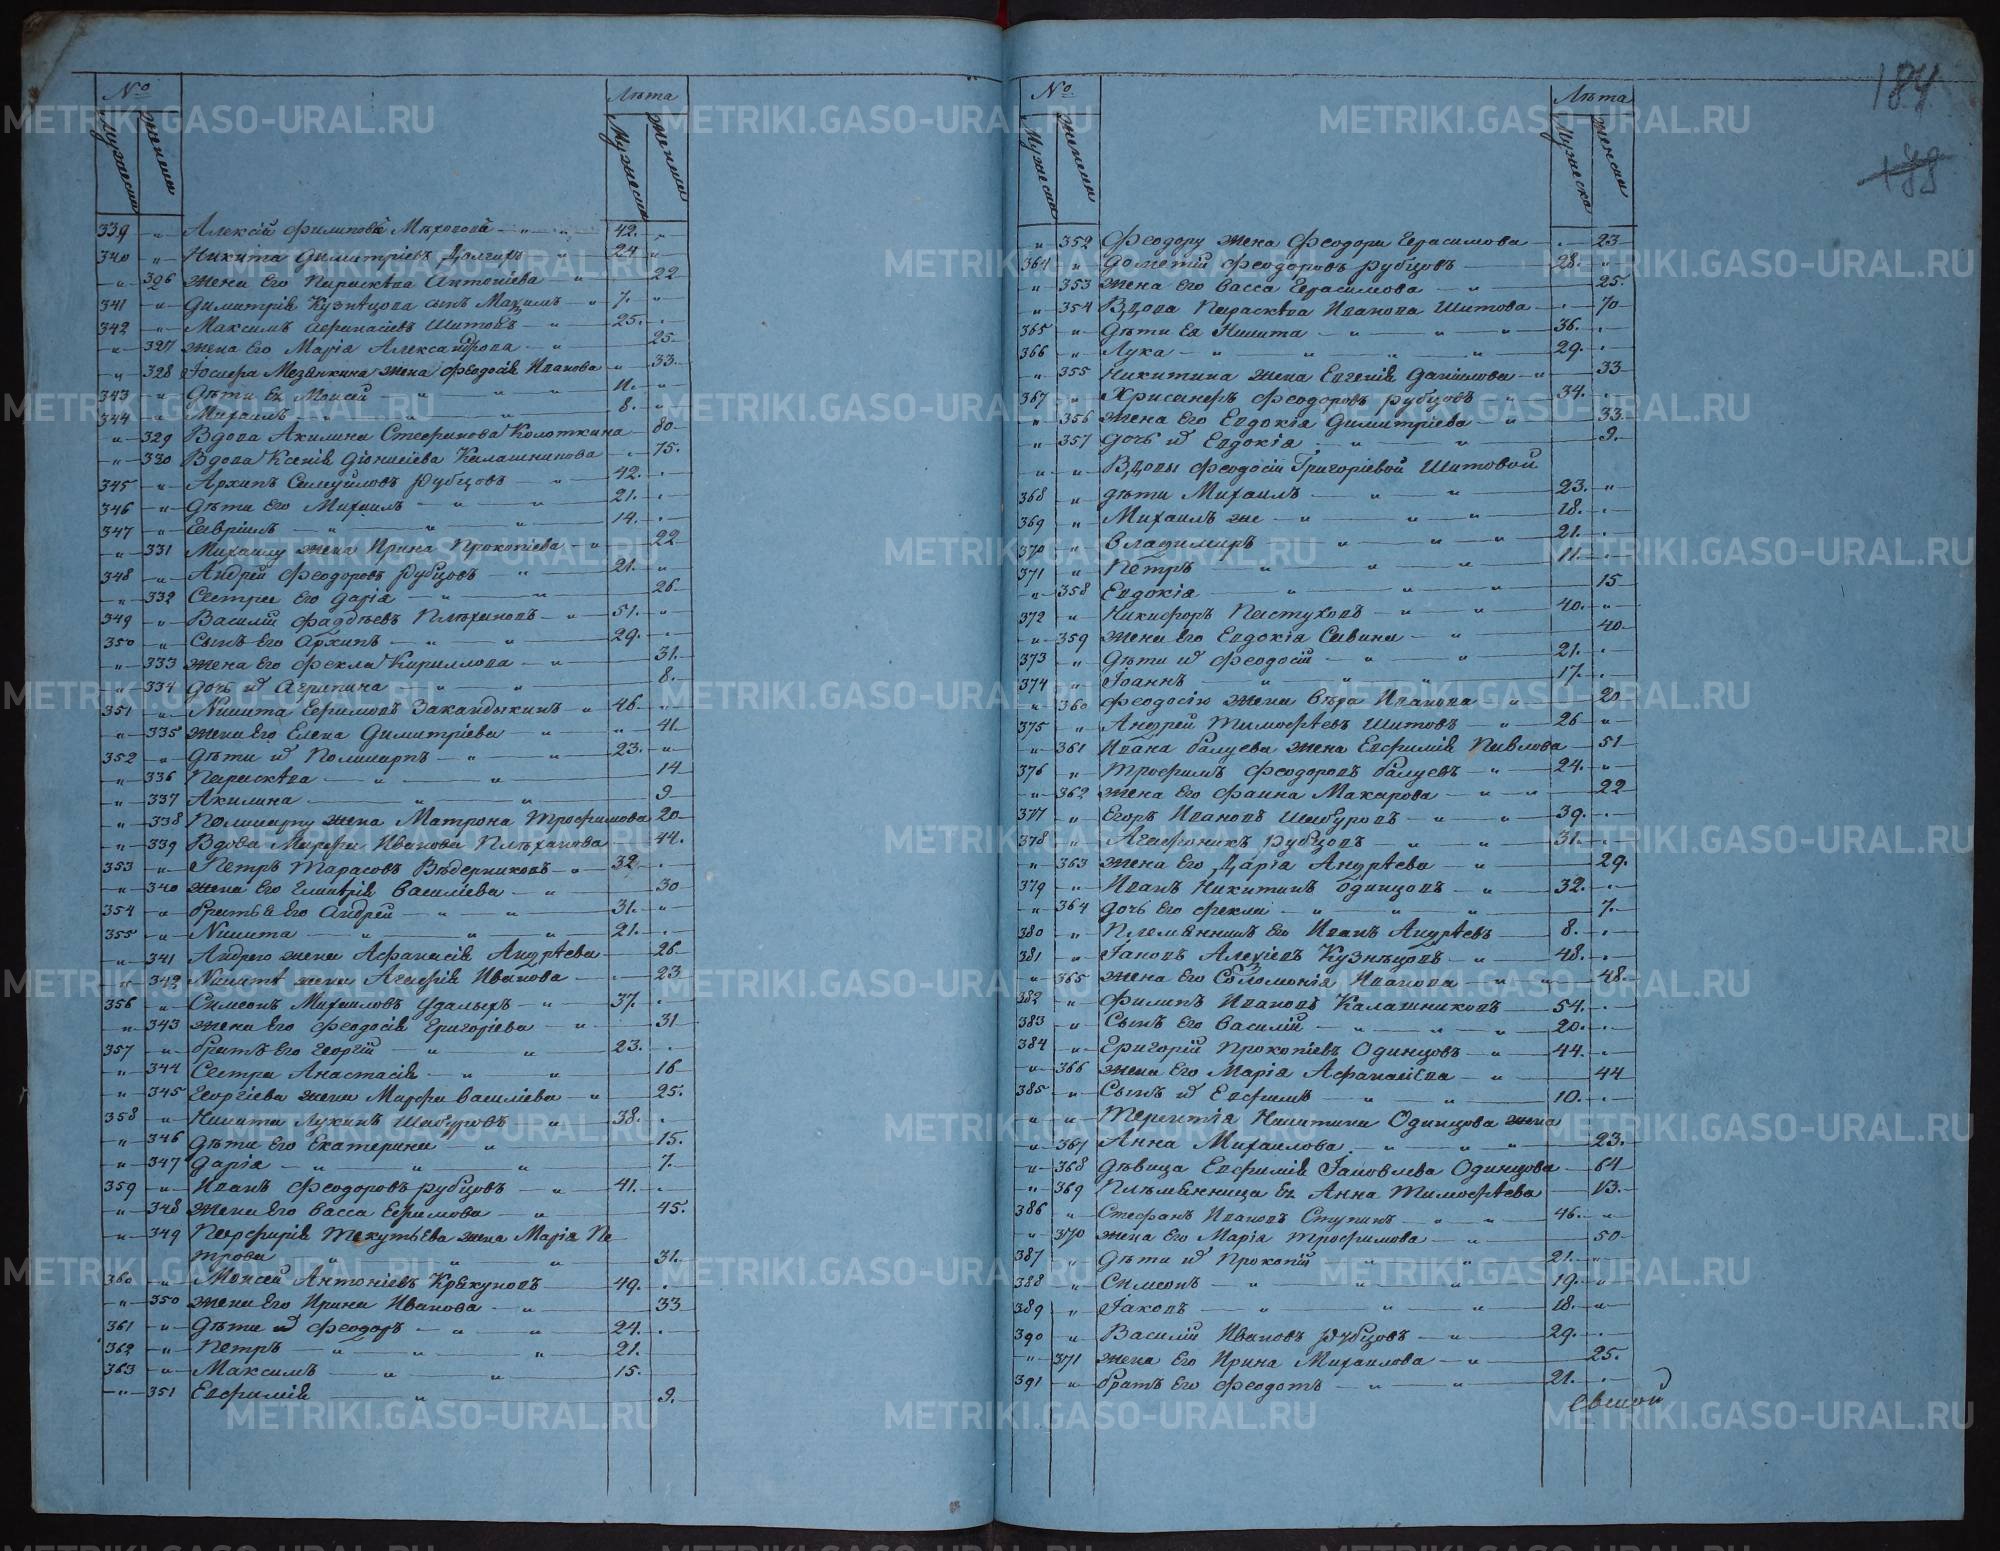 № Лѣта
Мужеска Женска Мужеска Женска
339 " Алексій Филиповъ 42. "
340 " Никита Димитріевъ " 24 "
" 326 жена Его Параскѣва Антоніева " 22
341 " Димитрія Кузнѣцова сынъ Максимъ " 7. "
342 " Максимъ Афанасіевъ Шитовъ " 25. "
" 327 жена Его Марія Александрова " 25.
" 328 Іосифа жена Феодосія Иванова " 33.
343 " Дѣти Ея Моисей " " " 11. "
344 " Михаилъ " " " 8. "
" 329 Вдова Акилина Стефанова Колоткина 80
" 330 Вдова Ксенія Діонисіева Калашникова " 75.
345 " Архипъ Самуиловъ Рубцовъ " 42. "
346 " Дѣти Его Михаилъ " " 21. "
347 " Гавріилъ " " " 14. "
" 331 Михаилу жена Ирина Прокопіева " 22
348 " Андрей Феодоровъ Рубцовъ " 21. "
" 332 Сестра Его Дарія " " 26
349 " Василій Фаддѣевъ Плѣхановъ " 51. "
350 " Сынъ Его Архипъ " " 29. "
" 333 жена Его Фекла Кириллова " 31.
" 334 дочь их Агрипина " " 8.
351 " Никита Ефимовъ " 46. "
" 335 жена Его Елена Димитріева " " 41.
352 " дѣти их Поликарпъ " " 23. "
" 336 Параскѣва " " 14
" 337 Акилина " " 9
" 338 Поликарпу жена Матрона Трофимова 20
" 339 Вдова Марфа Иванова Плѣханова 44.
353 " Петръ Тарасовъ Вѣдерниковъ " 32 "
" 340 жена Его Гликерія Василіева " 30
354 " братья Его Андрей " " 31. "
355 " Никита " " " 21. "
" 341 Андрею жена Афанасія Андрѣева 26
" 342 Никитѣ жена Агафія Иванова " 23
356 " Симеонъ Михаиловъ Удалыхъ " 37. "
" 343 жена Его Феодосія Григоріева " 31
357 " братъ Его Георгій " " 23. "
" 344 Сестра Анастасія " " 16
" 345 Георгіева жена Марфа Василіева " 25.
358 " Никита Лукинъ Шабуровъ " 38. "
" 346 дѣти Его Екатерина " 15.
" 347 Дарія " " " 7.
359 " Иванъ Феодоровъ Рубцовъ " 41. "
" 348 жена Его Васса Ефимова " 45.
" 349 Порфирія Текутьева жена Марія Пе-
трова " " " 31.
360 " Моисей Антоніевъ Крякуновъ 49. "
" 350 жена Его Ирина Иванова " 33
361 " Дѣти их Феодоръ " " 24. "
362 " Петръ " " " 21.
363 " Максимъ " " 15.
" 351 Евфимія " 9.
184
188
№ Лѣта
Мужеска Женска Мужеска Женска
" 352 Феодору жена Феодора Герасимова " 23
364 " Дометій Феодоровъ Рубцовъ 28. "
" 353 жена Его Васса Герасимова " 25.
" 354 Вдова Параскѣва Иванова Шитова " 70
365 " Дѣти Ея Никита " " " 36. "
366 " Лука " " " " 29. "
" 355 Никитина жена Евгенія Даниилова " 33
367 " Хрисанфъ Феодоровъ Рубцовъ " 34. "
" 356 жена Его Евдокія Димитріева " 33.
" 357 дочь их Евдокія " " 9.
" " Вдовы Феодосіи Григоріевой Шитовой
368 " дѣти Михаилъ " " 23. "
369 " Михаилъ же " " " 18. "
370 " Владимиръ " " " 21. "
371 " Петръ " " " 11. "
" 358 Евдокія " " " 15
372 " Никифоръ Пастуховъ " " 40. "
" 359 жена Его Евдокія Савина " 40
373 " Дѣти их Феодосій " " 21. "
374 " Іоаннъ " " " 17. "
" 360 Феодосію жена Вѣра Иванова " 20
375 " Андрей Тимофѣевъ Шитовъ " 26 "
" 361 Ивана Балуева жена Евфимія Павлова 51
376 " Трофимъ Феодоровъ Балуевъ " 24. "
" 362 жена Его Фаина Макарова " " 22
377 " Егоръ Ивановъ Шабуровъ " " 39. "
378 " Агафоникъ Рубцовъ " " 31. "
" 363 жена Его Дарія Андрѣева " 29.
379 " Иванъ Никитинъ Одинцовъ " 32. "
" 364 дочь Его Фекла " " " 7.
380 " Племянникъ Его Иванъ Андрѣевъ 8. "
381 " Іаковъ Алексіевъ Кузнѣцовъ " 48. "
" 365 жена Его Соломонія Иванова " " 48.
382 " Филипъ Ивановъ Калашниковъ 54. "
383 " Сынъ Его Василій " " " 20. "
384 " Григорій Прокопіевъ Одинцовъ " 44. "
" 366 жена Его Марія Афанасіева " 44
385 " Сынъ их Евфимъ " " 10. "
" " Терентія Никитина Одинцова жена
" 367 Анна Михаилова " " " 23.
" 368 дѣвица Евфимія Іаковлева Одинцова 64
" 369 Племянница Ея Анна Тимофѣева 13.
386 " Стефанъ Ивановъ Ступинъ " " 46. "
" 370 жена Его Марія Трофимова " 50
387 " Дѣти их Прокопій " " 21. "
388 " Симеонъ " " " 19. "
389 " Іаковъ " " " 18. "
390 " Василій Ивановъ Рубцовъ " 29. "
" 371 жена Его Ирина Михаилова " 25.
391 " братъ Его Феодотъ " " 21. "
METRIKI.GASO-URAL.RU